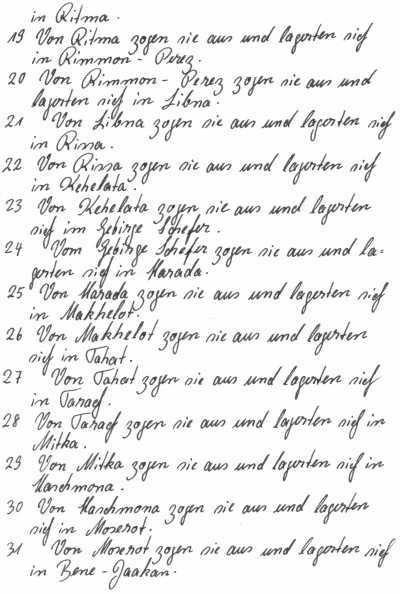 in Ritma.
19 Von Ritma zogen sie aus und lagerten sich
in Rimmon - Perez.
20 Von Rimmon - Perez zogen sie aus und
lagerten sich in Libna.
21 Von Libna zogen sie aus und lagerten sich
in Rissa.
22 Von Rissa zogen sie aus und lagerten sich
in Kehelata.
23 Von Kehelata zogen sie aus und lagerten
sich im Gebirge Schefer.
24 Vom Gebirge Schefer zogen sie aus und la=
gerten sich in Harada.
25 Von Harada zogen sie aus und lagerten sich
in Makhelot.
26 Von Makhelot zogen sie aus und lagerten
sich in Tahat.
27 Von Tahat zogen sie aus und lagerten sich
in Tarach.
28 Von Tarach zogen sie aus und lagerten sich in
Mitka.
29 Von Mitka zogen sie aus und lagerten sich in
Haschmona.
30 Von Haschmona zogen sie aus und lagerten
sich in Moserot.
31 Von Moserot zogen sie aus und lagerten sich
in Bene - Jaakan.